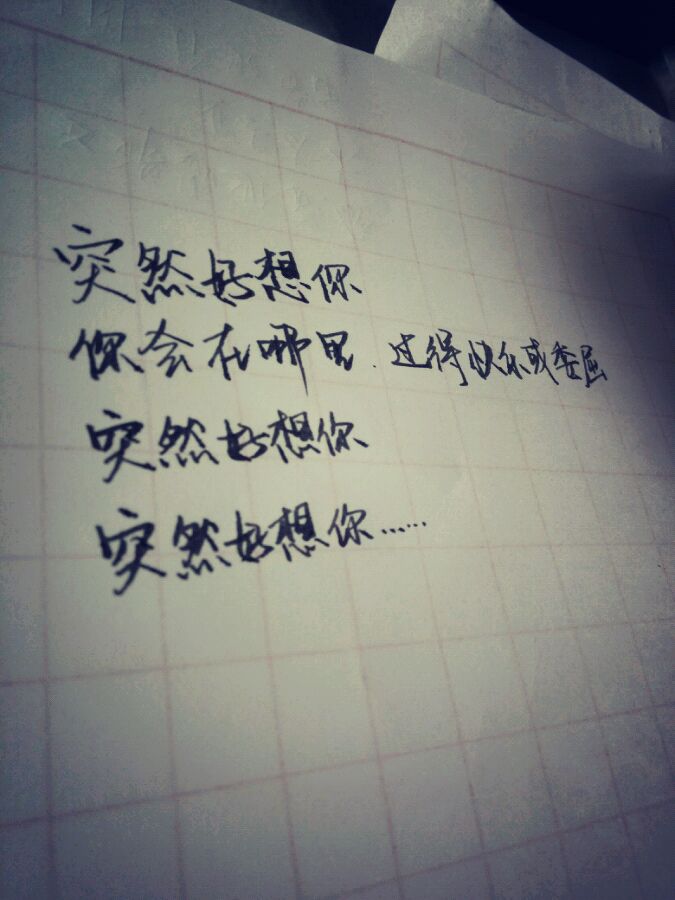 突然好想你
你会在哪里.过得快乐或委屈
突然好想你
突然好想你……